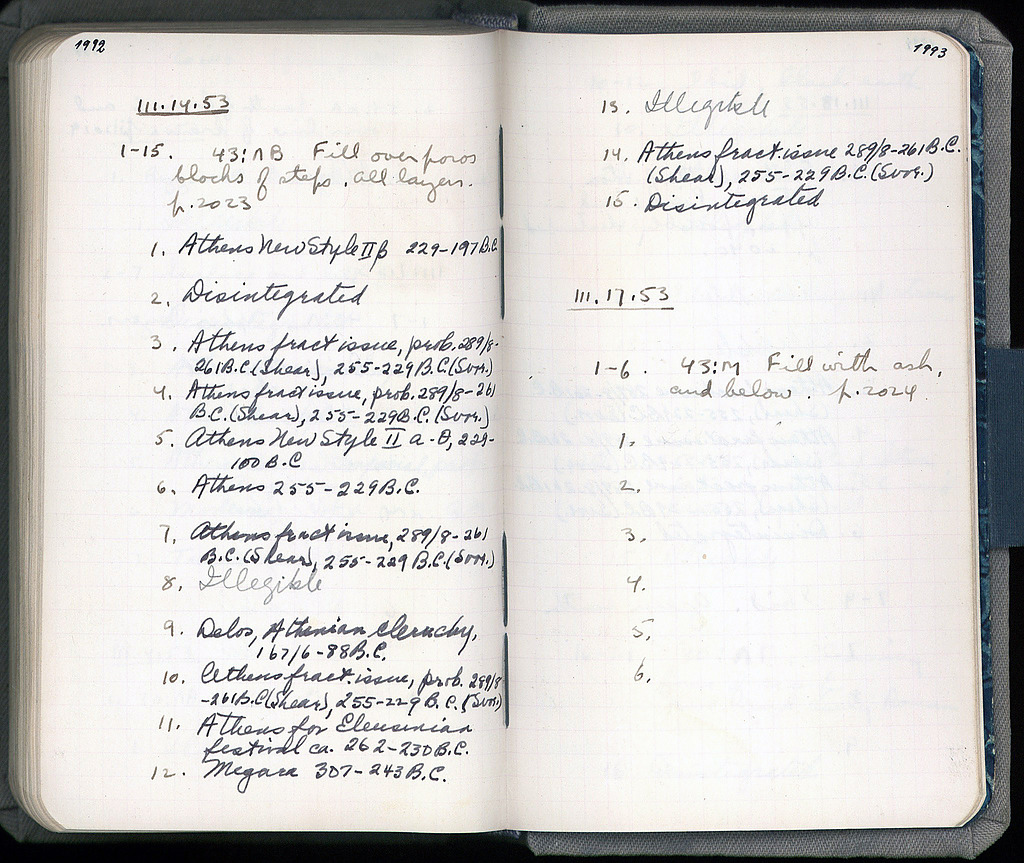 1992
III.14.53
1-15. 43:ΛΒ Fill over poros
blocks of steps. All layers.
p.2023
1. Athens New Style II β 229-197 B.C.
2. Disintegrated
3. Athens fract issue, prob. 289/8-
261 B.C. (Shear), 255-229 B.C. (Svor.)
4. Athens fract issue, prob. 289/8-261
B.C. (Shear), 255-229 B.C. (Svor.)
5. Athens New Style II a-θ, 229-
100 B.C
6. Athens 255-229 B.C.
7. Athens fract issue, 289/8-261
B.C. (Shear), 255-229 B.C. (Svor.)
8. Illegible
9. Delos, Athenian Cleruchy,
167/6-88 B.C.
10. Athens fract. issue, prob. 289/8
-261 B.C. (Shear), 255-229 B.C. (Svor.)
11. Athens for Eleusinian
festival ca. 262-230 B.C.
12. Megara 307-243 B.C.
1993
13. Illegible
14. Athens fract. issue 289/8-261 B.C.
(Shear), 255-229 B.C. (Svor.)
15. Disintegrated
III.17.53
1-6. 43:Μ Fill with ash,
and below. p.2024
1.
2.
3.
4.
5.
6.